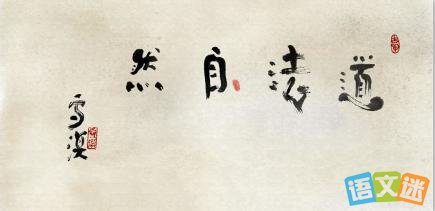 道法自然
雪漠
语文迷